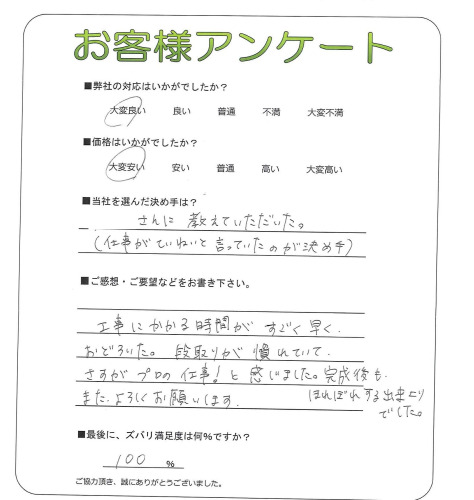 お客様アンケート
■弊社の対応はいかがでしたか？
大変良い 良い 普通 不満 大変不満
■価格はいかがでしたか？
大変安い 安い 普通 高い 大変高い
■当社を選んだ決め手は？
さんに 教えていただいた。
(仕事がていねいと言っていたのが決め手)
■ご感想・ご要望などをお書き下さい。
工事にかかる時間が すごく早く、
おどろいた。段取りが 慣れていて、
さすがプロの仕事！と 感じました。完成後も、
ほれぼれする出来上り
でした。
また、よろしくお願いします。
■最後に、ズバリ満足度は何%ですか？
100 %
ご協力頂き、誠にありがとうございました。